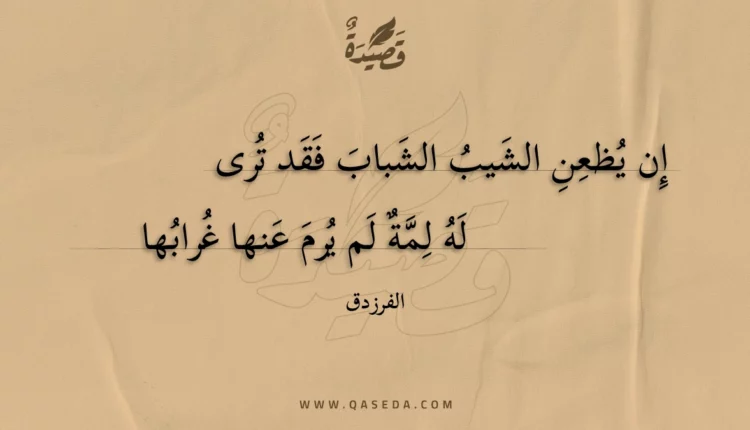 قَصِيدَةٌ
إِن يُظعِنِ الشَيبُ الشَبابَ فَقَد تُرى
لَهُ لِمَّةٌ لَم يُرمَ عَنها غُرابُها
الفرزدق
WWW.QASEDA.COM